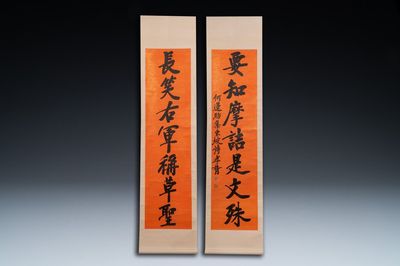 要知摩詰是文殊
長笑右軍稱草聖